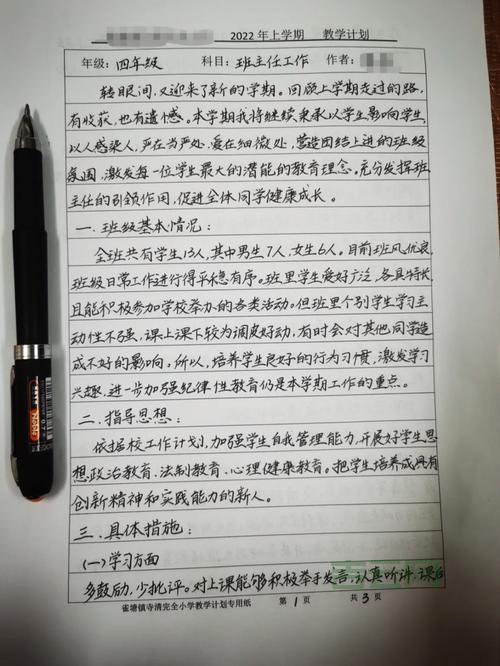 2022年上学期 教学计划
年级:四年级 科目:班主任工作 作者:
转眼间,又迎来了新的学期。回顾上学期走过的路,
有收获,也有遗憾。本学期我将继续秉承以学生影响学生,
以人感染人,严在当严处,爱在细微处,营造团结上进的班级
氛围,激发每一位学生最大的潜能的教育理念。充分发挥班
主任的引领作用,促进全体同学健康成长。
一.班级基本情况:
全班共有学生13人,其中男生7人,女生6人。目前班风优良,
班级日常工作进行得平稳有序。班里学生爱好广泛,各具特长,
且能积极参加学校举办的各类活动。但班里个别学生学习主
动性不强,课上课下较为调皮好动,有时会对其他同学造
成不好的影响。所以,培养学生良好的行为习惯,激发学习
兴趣,进一步加强纪律性教育仍是本学期工作的重点。
二.指导思想:
依据校工作计划,加强学生自我管理能力,开展好学生思
想政治教育、法制教育、心理健康教育。把学生培养成具有
创新精神和实践能力的新人。
三.具体措施:
(一)学习方面
多鼓励,少批评。对上课能够积极举手发言,认真听讲,课后
雀塘镇寺清完全小学教学计划专用纸 第1页 共3页